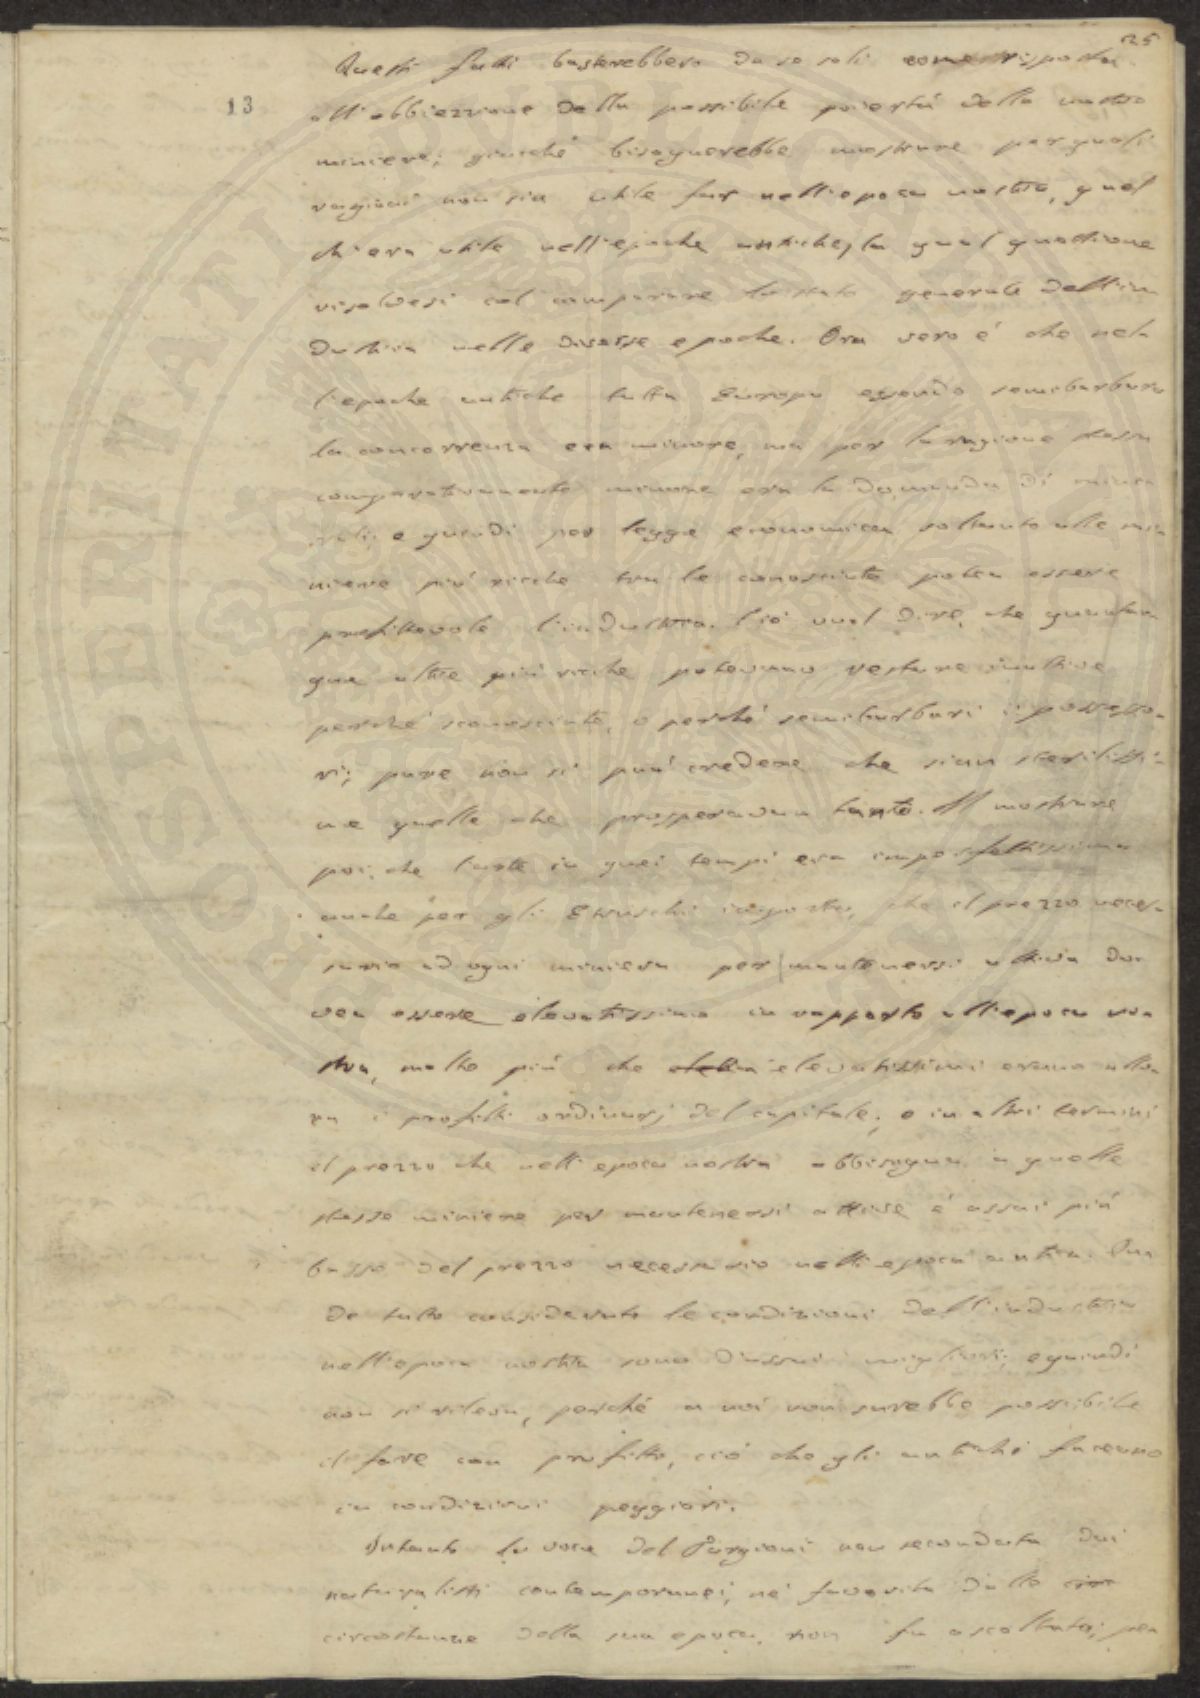 25
Questi fatti basterebbero da se soli come risposta
13
all'obbiezzione della possibile povertá delle nostre
miniere; giacché bisognerebbe mostrare per quali
ragioni non sia utile far nell'epoca nostra, quel
ch'era utile nell'epoche antiche, la qual quistione
risolvesi col comparare lo stato generale dell'in
dustria nelle diverse epoche. Ora vero é che nel
l'epoche antiche tutta Europa essendo semibarbara
la concorrenza era minore, ma per la ragione stessa
comparativamente minore era la domanda di mine
rali; e quindi per legge economica soltanto alle mi-
niere piú ricche tra le conosciute potea essere
profittevole l'industria. Ció vuol dire, che quantun
que altre piú ricche potevano restare inattive
perché sconosciute, o perché semibarbari i possesso-
ri; pure non si puó credere che sian sterilissi-
me quelle che prosperavan tanto. Il mostrare
poi, che l'arte in quei tempi era imperfettissima
anche per gli Etruschi importa, che il prezzo neces-
sario ad ogni miniera per mantenersi attiva do
vea essere elevatissimo in rapporto all'epoca no
stra, molto piú che elevatissimi erano allo
ra i profitti ordinarj del capitale; o in altri termini
il prezzo che nell'epoca nostra abbisogna a quelle
stesse miniere per mantenersi attive é assai piú
basso del prezzo necessario nell'epoca antica. Qua
do tutto considerato le condizioni dell'industria
nell'epoca nostra sono d'assai migliori; e quindi
non si rileva, perché a noi non sarebbe possibile
di fare con profitto, ció che gli antichi faceano
in condizioni peggiori.
Intanto la voce del Targioni non secondata dai
naturalisti contemporanei, né favorita dalle
circostanze della sua epoca, non fu ascoltata; per
PROSPERITATI